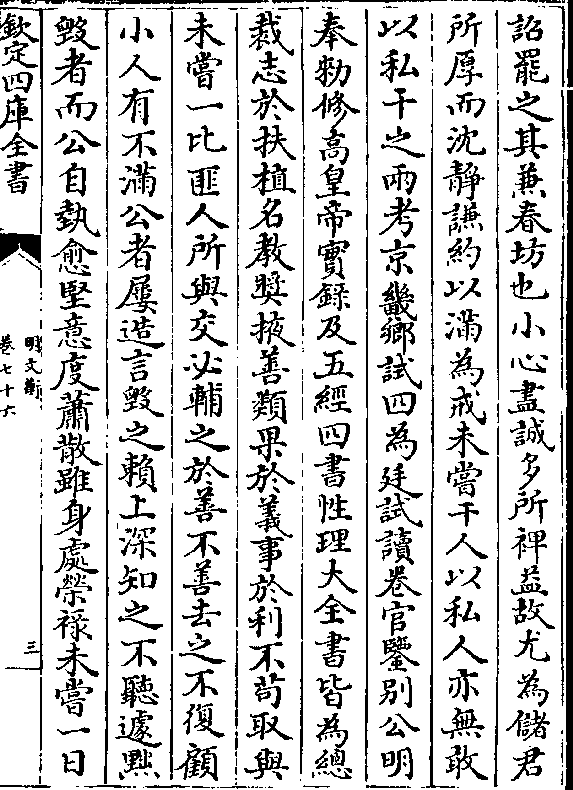 詔罷之其兼春坊也小心盡誠多所裨益故尤為儲君
所厚而沈靜謙約以滿為戒未嘗干人以私人亦無敢
以私干之兩考京畿鄉試四為廷試讀卷官鑒别公明
奉勅修高皇帝實錄及五經四書性理大全書皆為總
裁志於扶植名教奬掖善類果於義事於利不苟取與
未嘗一比匪人所與交必輔之於善不善去之不復顧
小人有不滿公者屢造言毁之賴上深知之不聽遽黜
毁者而公自執愈堅意度蕭散雖身處榮祿未嘗一日
欽定四庫全書
明文衡
卷七十六
三